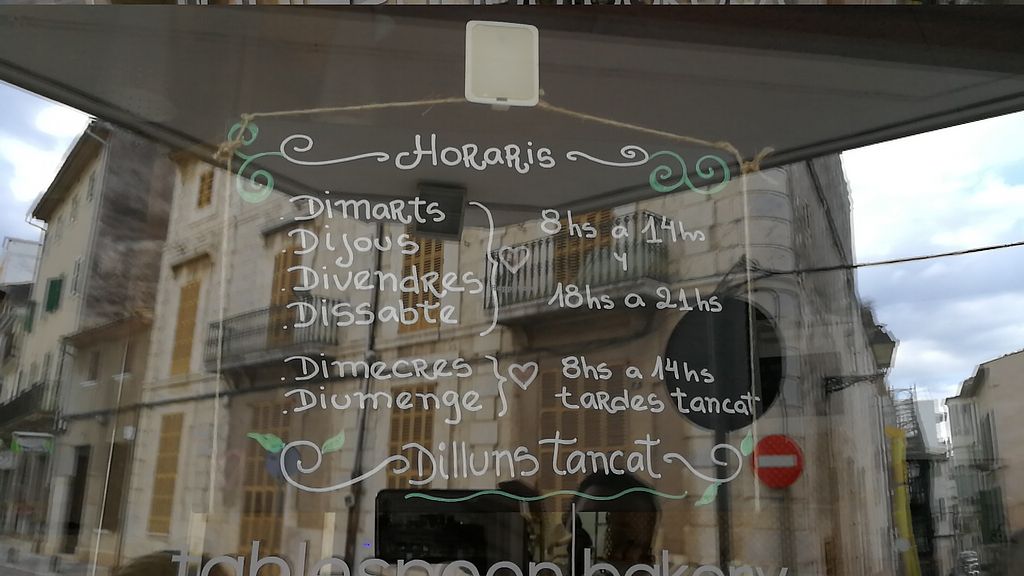 Horaris
.Dimarts
.Dijous 8hs a 14hs
.Divendres y
.Dissabte 18hs a 21hs
.Dimecres 8hs a 14hs
.Diumenge tardes tancat
Dilluns tancat
tablespoon bakery